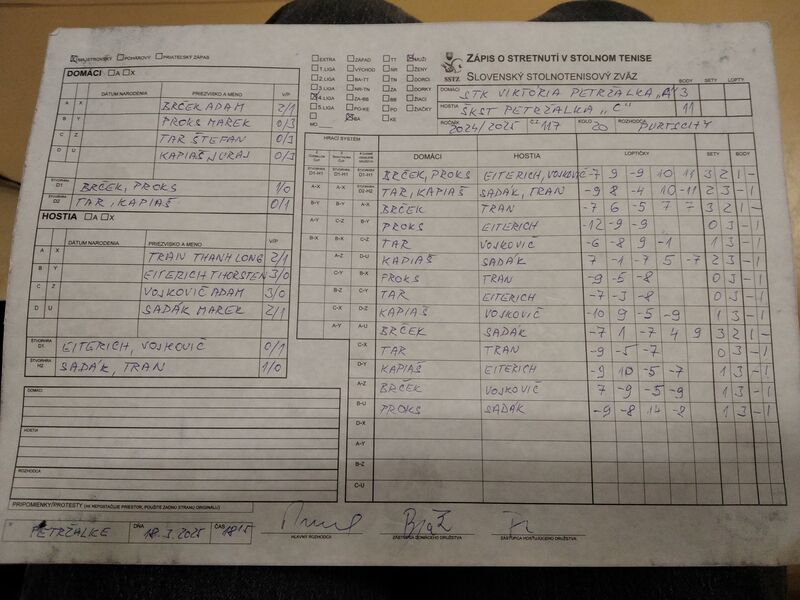 MAJSTROVSKÝ POHÁROVÝ PRIATEĽSKÝ ZÁPAS
EXTRA ZÁPAD TT MUŽI
1.LIGA VÝCHOD NR ŽENY
2.LIGA BA TN DORCI
3.LIGA NR-TN ZA DORKY
4.LIGA ZA-BB BB ŽIACI
5.LIGA PO-KE PO ŽIAČKY
MO BA KE
SSTZ
ZÁPIS O STRETNUTÍ V STOLNOM TENISE
SLOVENSKÝ STOLNOTENISOVÝ ZVÄZ
BODY SETY LOPTY
DOMÁCI STK VIKTÓRIA PETRŽALKA „A“ 3
HOSTIA ŠKST PETRŽALKA „C“ 11
ROČNÍK 2024/2025 Č.Z. 117 KOLO 20 ROZHODCA
DOMÁCI A X
DÁTUM NARODENIA PRIEZVISKO A MENO V/P
A X BRČEK ADAM 2/1
B Y PROKS MAREK 0/3
C Z TAR ŠTEFAN 0/3
D U KAPIAŠ JURAJ 0/3
ŠTVORHRA D1 BRČEK, PROKS 1/0
D2 TAR, KAPIAŠ 0/1
HOSTIA A X
DÁTUM NARODENIA PRIEZVISKO A MENO V/P
A X TRAN THANH LONG 2/1
B Y EITERICH THORSTEN 3/0
C Z VOJKOVIČ ADAM 3/0
D U SADÁK MAREK 2/1
ŠTVORHRA D1 EITERICH, VOJKOVIČ 0/1
ŠTVORHRA H2 SADÁK, TRAN 1/0
HRACÍ SYSTÉM DOMÁCI HOSTIA LOPTIČKY SETY BODY
D1-H1 D1-H1 D1-H1 BRČEK, PROKS EITERICH, VOJKOVIČ -7 9 -9 10 11 3 2 1 -
A-X A-X D2-H2 TAR, KAPIAŠ SADÁK, TRAN -9 8 -4 10 -11 2 3 - 1
B-Y B-Y A-X BRČEK TRAN -7 6 -5 7 7 3 2 1 -
A-Y C-Z B-Y PROKS EITERICH -12 -9 -9 0 3 - 1
B-X B-X C-Z TAR VOJKOVIČ -6 -8 9 -1 1 3 - 1
A-Z D-U KAPIAŠ SADÁK 7 -1 -7 5 -7 2 3 - 1
C-Y B-X PROKS TRAN -9 -5 -8 0 3 - 1
B-Z C-Y TAR EITERICH -7 -3 -8 0 3 - 1
C-X D-Z KAPIAŠ VOJKOVIČ -10 9 -5 -9 1 3 - 1
A-Y A-U BRČEK SADÁK -7 1 -7 4 9 3 2 1 -
C-X TAR TRAN -9 -5 -7 0 3 - 1
D-Y KAPIAŠ EITERICH -9 10 -5 -7 1 3 - 1
A-Z BRČEK VOJKOVIČ 7 -9 -5 -9 1 3 - 1
B-U PROKS SADÁK -9 -8 14 -8 1 3 - 1
D-X
A-Y
B-Z
C-U
DOMÁCI
HOSTIA
ROZHODCA
PRIPOMIENKY/PROTESTY (AK NEPOSTAČUJE PRIESTOR, POUŽITE ZADNÚ STRANU ORIGINÁLU)
V PETRŽALKE DŇA 18.3.2025 ČAS 1815
HLAVNÝ ROZHODCA ZÁSTUPCA DOMÁCEHO DRUŽSTVA ZÁSTUPCA HOSŤUJÚCEHO DRUŽSTVA